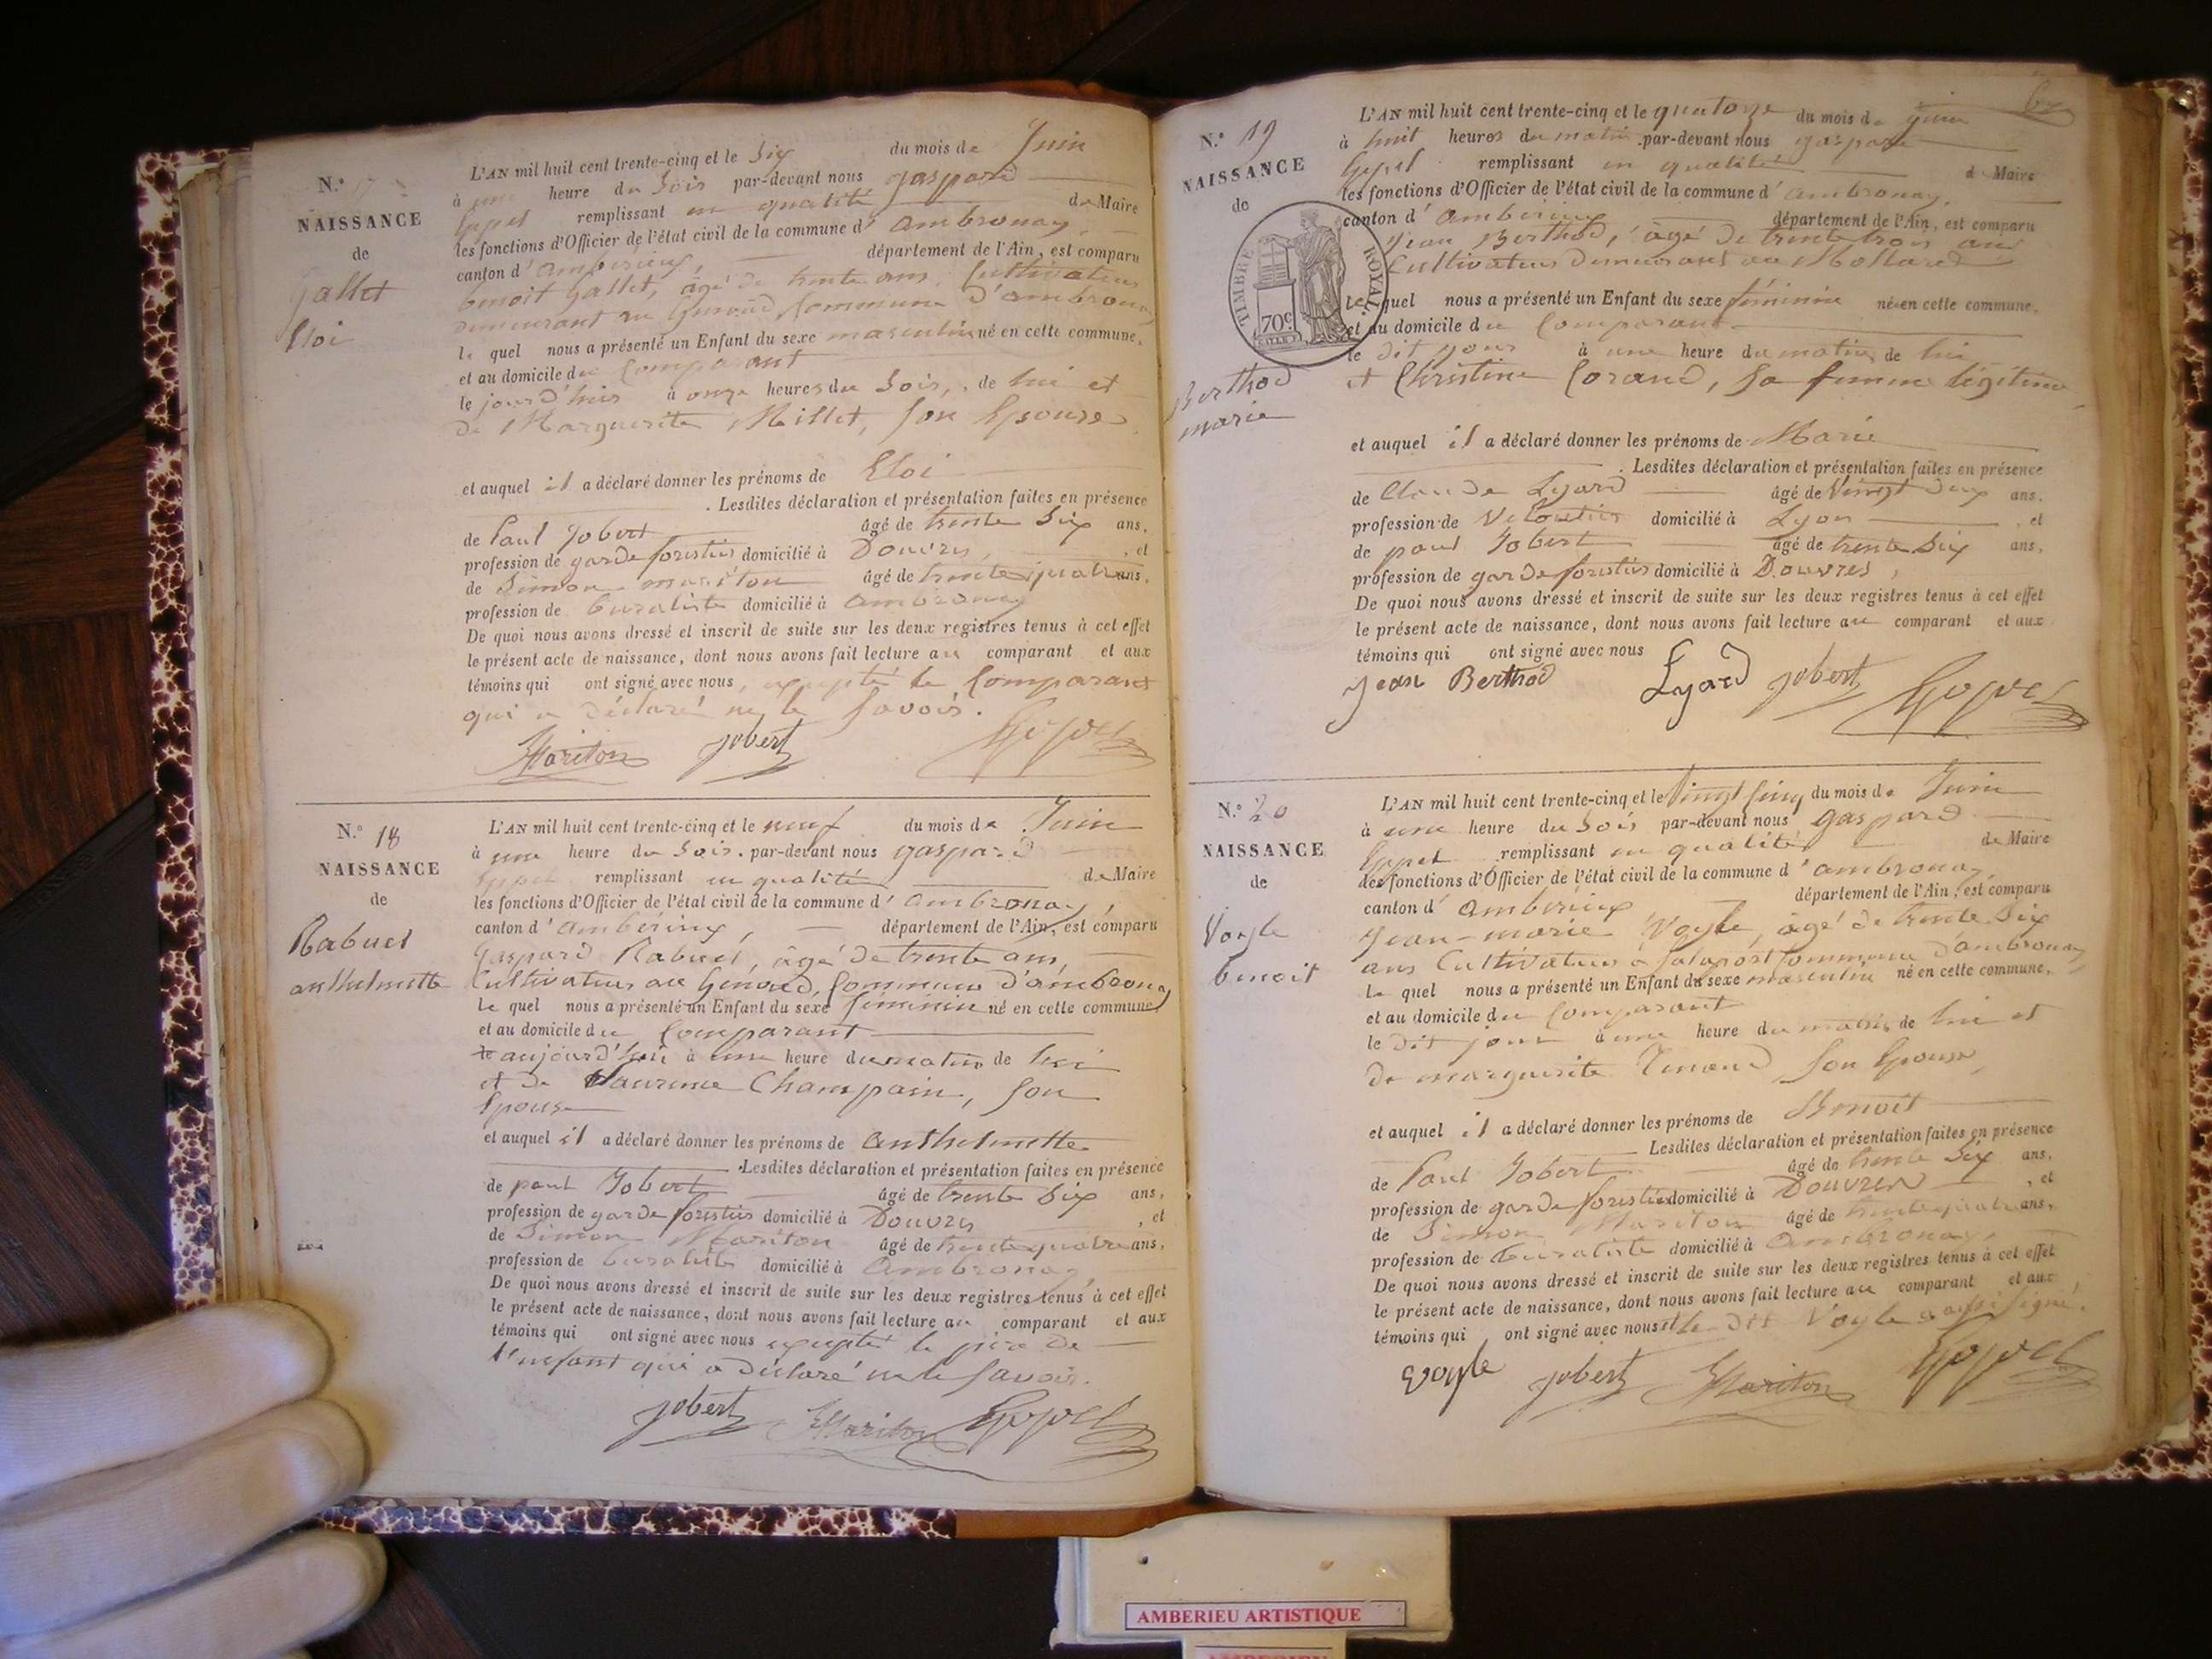 N.° 17
NAISSANCE
de
Gallet
Eloi
L'AN mil huit cent trente-cinq et le Six du mois de Juin
à une heure du Soir par-devant nous gaspard
Eppel remplissant en qualité de Maire
les fonctions d'Officier de l'état civil de la commune d'ambronay,
canton d'ambérieux, département de l'Ain, est comparu
benoit gallet, âgé de trente ans, Cultivateur
demeurant au Genoud, Commune d'ambronay
le quel nous a présenté un Enfant du sexe masculin né en cette commune,
et au domicile du Comparant
le jourd'hui à onze heures du Soir, de lui et
de Marguerite Millet, son Epouse
et auquel il a déclaré donner les prénoms de Eloi
. Lesdites déclaration et présentation faites en présence
de Paul Jobert âgé de trente Six ans,
profession de garde forestier domicilié à Douvres, et
de Simon mariton âgé de trente quatre ans,
profession de buraliste domicilié à ambronay
De quoi nous avons dressé et inscrit de suite sur les deux registres tenus à cet effet
le présent acte de naissance, dont nous avons fait lecture au comparant et aux
témoins qui ont signé avec nous, excepté le Comparant
qui a déclaré ne le savoir.
Mariton Jobert Eppel
N.° 18
NAISSANCE
de
Rabuel
anthelmette
L'AN mil huit cent trente-cinq et le neuf du mois de Juin
à une heure du Soir. par-devant nous gaspard
Eppel remplissant en qualité de Maire
les fonctions d'Officier de l'état civil de la commune d'ambronay,
canton d'ambérieux, département de l'Ain, est comparu
Gaspard Rabuel, âgé de trente ans,
Cultivateur au Genoud, Commune d'ambronay
le quel nous a présenté un Enfant du sexe féminin né en cette commune
et au domicile du Comparant
le aujourd'hui à une heure du matin de lui
et de Laurence Champain, son
Epouse
et auquel il a déclaré donner les prénoms de anthelmette
. Lesdites déclaration et présentation faites en présence
de paul Jobert âgé de trente Six ans,
profession de garde forestier domicilié à Douvres, et
de Simon Mariton âgé de trente quatre ans,
profession de buraliste domicilié à Ambronay,
De quoi nous avons dressé et inscrit de suite sur les deux registres tenus à cet effet
le présent acte de naissance, dont nous avons fait lecture au comparant et aux
témoins qui ont signé avec nous excepté le père de
l'enfant qui a déclaré ne le savoir.
Jobert Mariton Eppel
N.° 19
NAISSANCE
de
TIMBRE ROYAL
70c
Berthod
marie
L'AN mil huit cent trente-cinq et le quatorze du mois de juin
à huit heures du matin par-devant nous gaspard
Eppel remplissant en qualité de Maire
les fonctions d'Officier de l'état civil de la commune d'ambronay,
canton d'ambérieux département de l'Ain, est comparu
Jean Berthod, âgé de trente trois ans
Cultivateur demeurant au Mollard
Le quel nous a présenté un Enfant du sexe féminin née en cette commune,
et au domicile du Comparant
le dit jour à une heure du matin de lui
et Christine Corand, sa femme légitime
et auquel il a déclaré donner les prénoms de Marie
. Lesdites déclaration et présentation faites en présence
de Claude Lyard âgé de Vingt deux ans,
profession de Veloutier domicilié à Lyon, et
de paul Jobert âgé de trente Six ans,
profession de garde forestier domicilié à Douvres,
De quoi nous avons dressé et inscrit de suite sur les deux registres tenus à cet effet
le présent acte de naissance, dont nous avons fait lecture au comparant et aux
témoins qui ont signé avec nous
Jean Berthod Lyard Jobert Eppel
N.° 20
NAISSANCE
de
Voyle
benoit
L'AN mil huit cent trente-cinq et le Vingt cinq du mois de Juin
à une heure du Soir par-devant nous gaspard
Eppel remplissant en qualité de Maire
les fonctions d'Officier de l'état civil de la commune d'ambronay
canton d'ambérieux département de l'Ain, est comparu
Jean-marie Voyle, âgé de trente Six
ans Cultivateur à Salaport Commune d'ambronay
Le quel nous a présenté un Enfant du sexe masculin né en cette commune,
et au domicile du Comparant
le dit jour à une heure du matin, de lui et
de marguerite Tenand, son Epouse,
et auquel il a déclaré donner les prénoms de Benoit
Lesdites déclaration et présentation faites en présence
de Paul Jobert âgé de trente Six ans,
profession de garde forestier domicilié à Douvres, et
de Simon Mariton âgé de trente quatre ans,
profession de buraliste domicilié à Ambronay,
De quoi nous avons dressé et inscrit de suite sur les deux registres tenus à cet effet
le présent acte de naissance, dont nous avons fait lecture au comparant et aux
témoins qui ont signé avec nous et le dit Voyle a aussi signé.
Voyle Jobert Mariton Eppel
AMBERIEU ARTISTIQUE